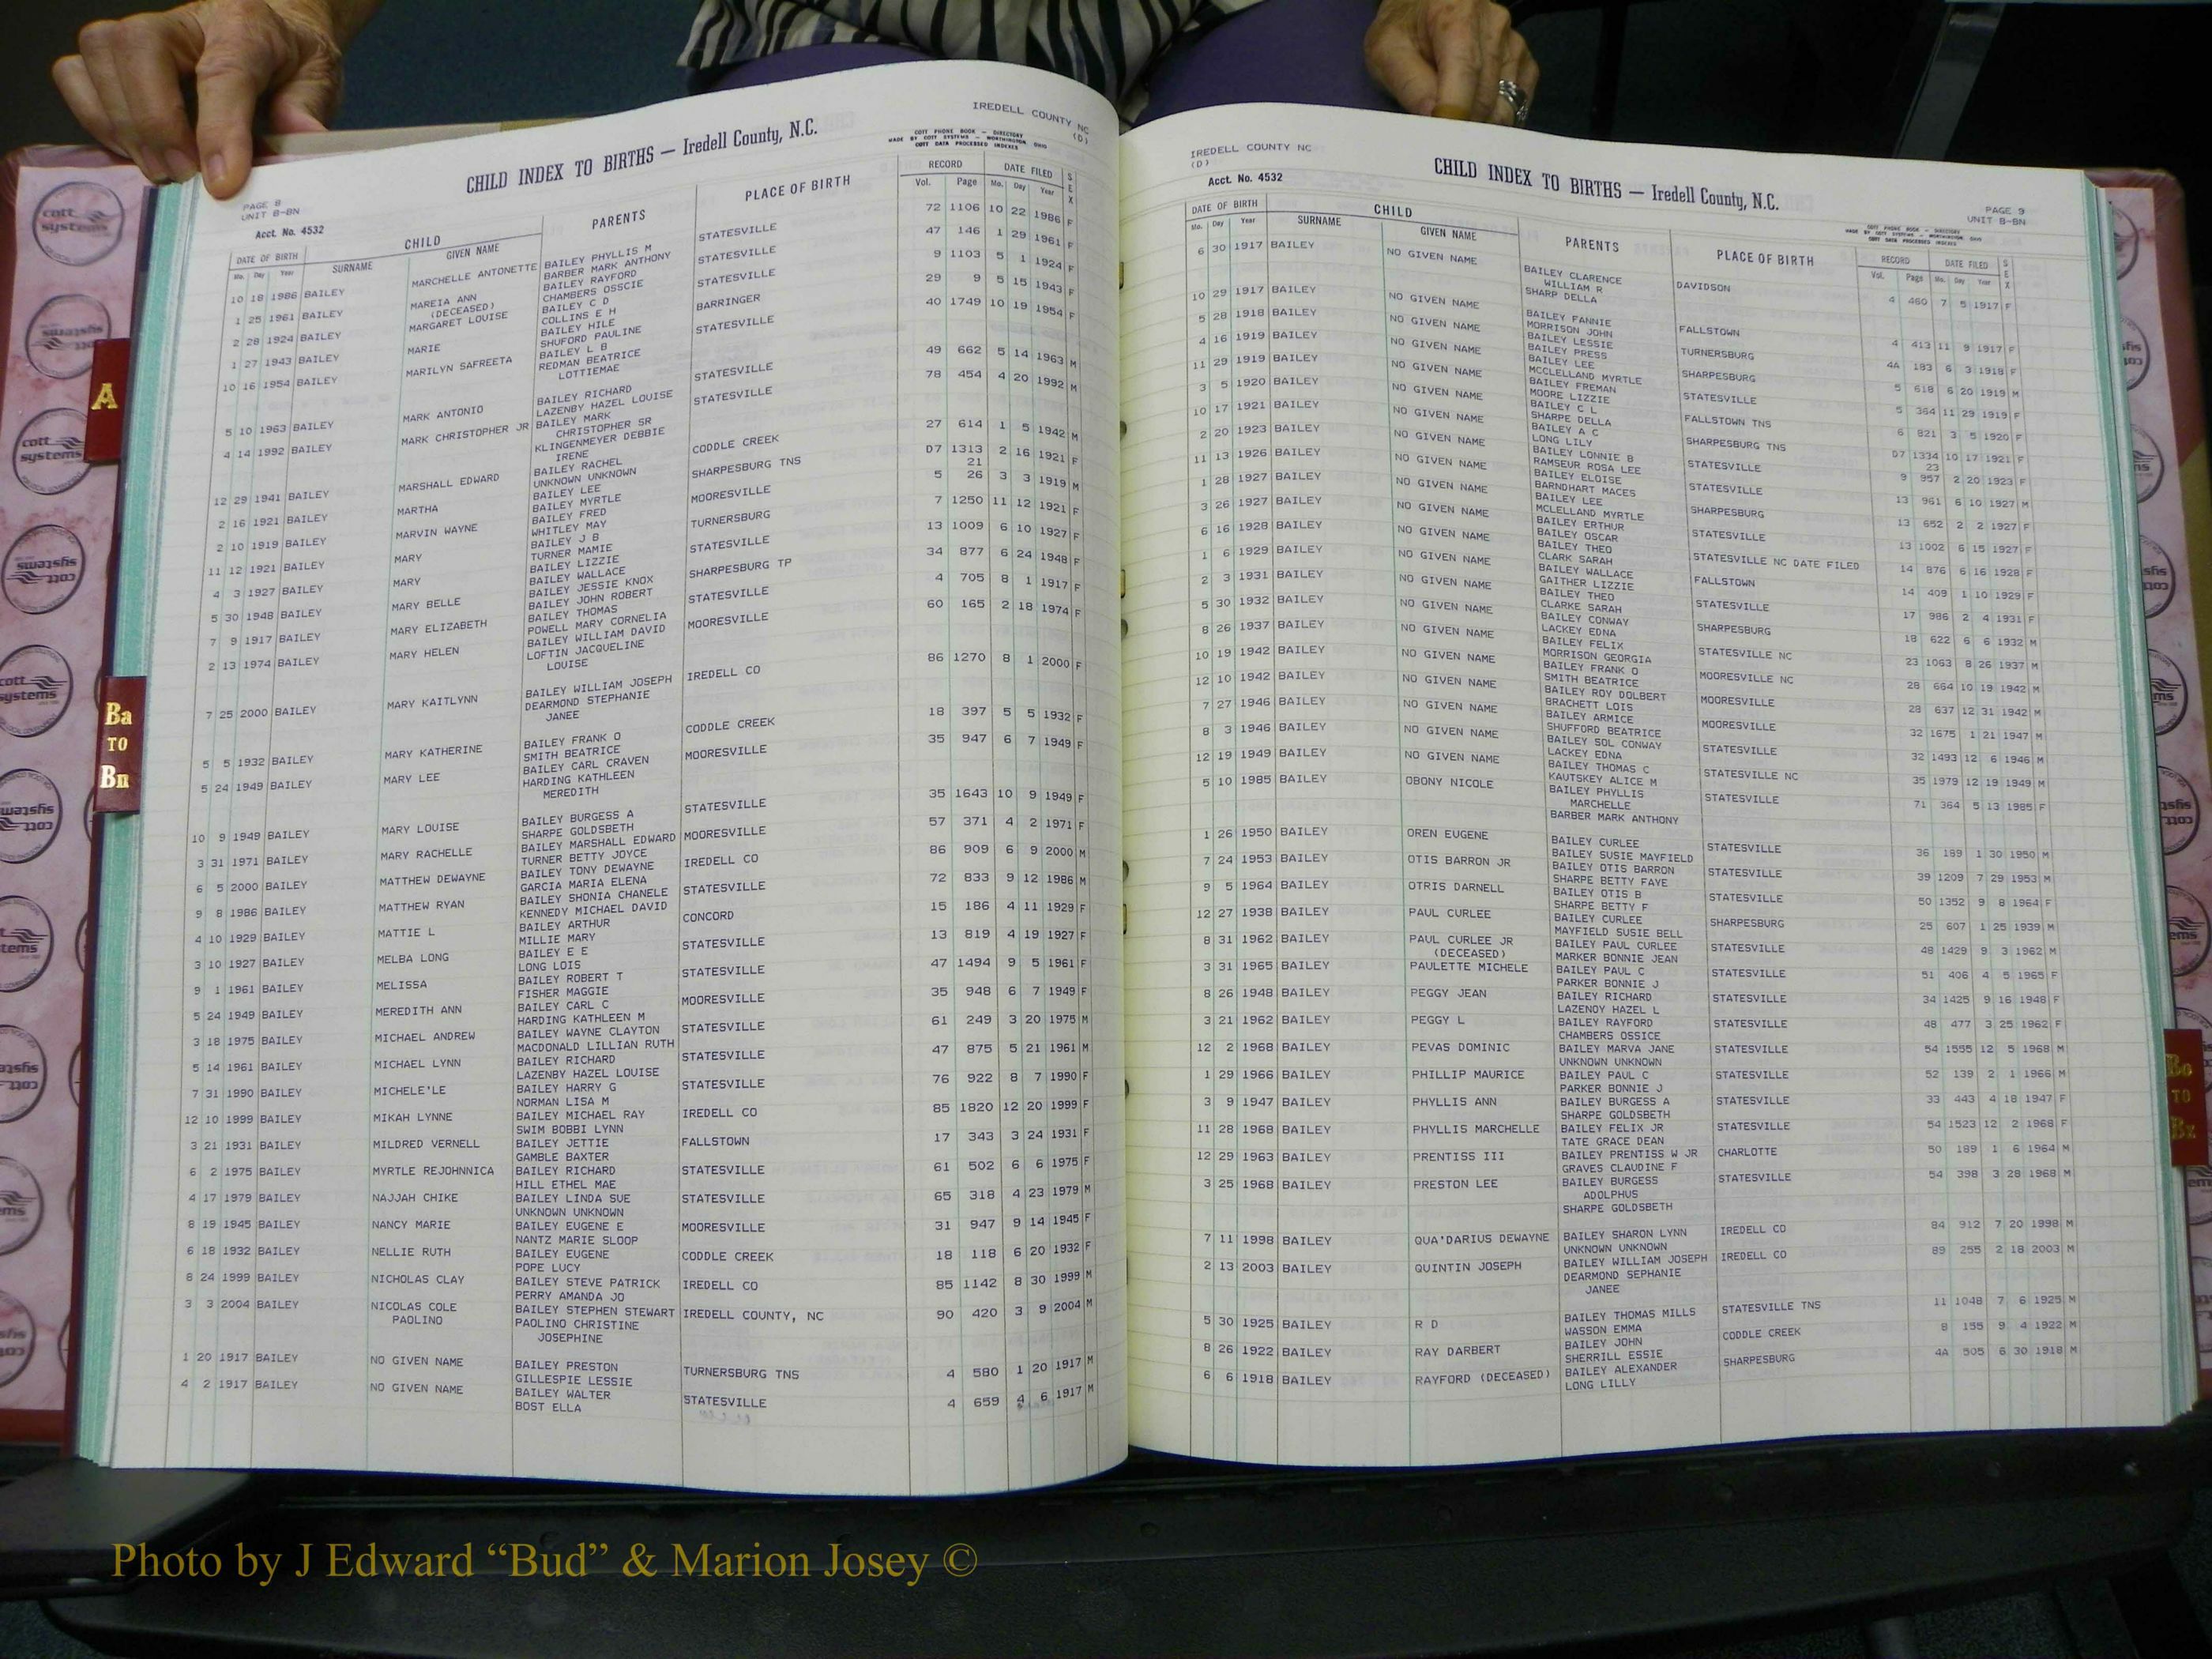 IREDELL COUNTY NC
(D)
CHILD INDEX TO BIRTHS — Iredell County, N.C.
COTT PHONE BOOK — DIRECTORY
MADE BY COTT SYSTEMS — WORTHINGTON, OHIO
COTT DATA PROCESSED INDEXES
PAGE 8
UNIT B-BN
Acct. No. 4532
DATE OF BIRTH CHILD PARENTS PLACE OF BIRTH RECORD DATE FILED SEX
Mo. Day Year SURNAME GIVEN NAME Vol. Page Mo. Day Year
10 18 1986 BAILEY MARCHELLE ANTONETTE BAILEY PHYLLIS M STATESVILLE 72 1106 10 22 1986 F
BARBER MARK ANTHONY
1 25 1961 BAILEY MAREIA ANN BAILEY RAYFORD STATESVILLE 47 146 1 29 1961 F
(DECEASED) CHAMBERS OSSCIE
2 28 1924 BAILEY MARGARET LOUISE BAILEY C D STATESVILLE 9 1103 5 1 1924 F
COLLINS E H
1 27 1943 BAILEY MARIE BAILEY HILE BARRINGER 29 9 5 15 1943 F
SHUFORD PAULINE
10 16 1954 BAILEY MARILYN SAFREETA BAILEY L B STATESVILLE 40 1749 10 19 1954 F
REDMAN BEATRICE
LOTTIEMAE
5 10 1963 BAILEY MARK ANTONIO BAILEY RICHARD STATESVILLE 49 662 5 14 1963 M
LAZENBY HAZEL LOUISE
4 14 1992 BAILEY MARK CHRISTOPHER JR BAILEY MARK STATESVILLE 78 454 4 20 1992 M
CHRISTOPHER SR
KLINGENMEYER DEBBIE
IRENE
12 29 1941 BAILEY MARSHALL EDWARD BAILEY RACHEL CODDLE CREEK 27 614 1 5 1942 M
UNKNOWN UNKNOWN
2 16 1921 BAILEY MARTHA BAILEY LEE SHARPESBURG TNS D7 1313 2 16 1921 F
BAILEY MYRTLE 21
2 10 1919 BAILEY MARVIN WAYNE BAILEY FRED MOORESVILLE 5 26 3 3 1919 M
WHITLEY MAY
11 12 1921 BAILEY MARY BAILEY J B TURNERSBURG 7 1250 11 12 1921 F
TURNER MAMIE
4 3 1927 BAILEY MARY BAILEY LIZZIE STATESVILLE 13 1009 6 10 1927 F
BAILEY WALLACE
5 30 1948 BAILEY MARY BELLE BAILEY JESSIE KNOX SHARPESBURG TP 34 877 6 24 1948 F
BAILEY JOHN ROBERT
7 9 1917 BAILEY MARY ELIZABETH BAILEY THOMAS STATESVILLE 4 705 8 1 1917 F
POWELL MARY CORNELIA
2 13 1974 BAILEY MARY HELEN BAILEY WILLIAM DAVID MOORESVILLE 60 165 2 18 1974 F
LOFTIN JACQUELINE
LOUISE
7 25 2000 BAILEY MARY KAITLYNN BAILEY WILLIAM JOSEPH IREDELL CO 86 1270 8 1 2000 F
DEARMOND STEPHANIE
JANEE
5 5 1932 BAILEY MARY KATHERINE BAILEY FRANK O CODDLE CREEK 18 397 5 5 1932 F
SMITH BEATRICE
5 24 1949 BAILEY MARY LEE BAILEY CARL CRAVEN MOORESVILLE 35 947 6 7 1949 F
HARDING KATHLEEN
MEREDITH
10 9 1949 BAILEY MARY LOUISE BAILEY BURGESS A STATESVILLE 35 1643 10 9 1949 F
SHARPE GOLDSBETH
3 31 1971 BAILEY MARY RACHELLE BAILEY MARSHALL EDWARD MOORESVILLE 57 371 4 2 1971 F
TURNER BETTY JOYCE
6 5 2000 BAILEY MATTHEW DEWAYNE BAILEY TONY DEWAYNE IREDELL CO 86 909 6 9 2000 M
GARCIA MARIA ELENA
9 8 1986 BAILEY MATTHEW RYAN BAILEY SHONIA CHANELE STATESVILLE 72 833 9 12 1986 M
KENNEDY MICHAEL DAVID
4 10 1929 BAILEY MATTIE L BAILEY ARTHUR CONCORD 15 186 4 11 1929 F
MILLIE MARY
3 10 1927 BAILEY MELBA LONG BAILEY E E STATESVILLE 13 819 4 19 1927 F
LONG LOIS
9 1 1961 BAILEY MELISSA BAILEY ROBERT T STATESVILLE 47 1494 9 5 1961 F
FISHER MAGGIE
5 24 1949 BAILEY MEREDITH ANN BAILEY CARL C MOORESVILLE 35 948 6 7 1949 F
HARDING KATHLEEN M
3 18 1975 BAILEY MICHAEL ANDREW BAILEY WAYNE CLAYTON STATESVILLE 61 249 3 20 1975 M
MACDONALD LILLIAN RUTH
5 14 1961 BAILEY MICHAEL LYNN BAILEY RICHARD STATESVILLE 47 875 5 21 1961 M
LAZENBY HAZEL LOUISE
7 31 1990 BAILEY MICHELE'LE BAILEY HARRY G STATESVILLE 76 922 8 7 1990 F
NORMAN LISA M
12 10 1999 BAILEY MIKAH LYNNE BAILEY MICHAEL RAY IREDELL CO 85 1820 12 20 1999 F
SWIM BOBBI LYNN
3 21 1931 BAILEY MILDRED VERNELL BAILEY JETTIE FALLSTOWN 17 343 3 24 1931 F
GAMBLE BAXTER
6 2 1975 BAILEY MYRTLE REJOHNNICA BAILEY RICHARD STATESVILLE 61 502 6 6 1975 F
HILL ETHEL MAE
4 17 1979 BAILEY NAJJAH CHIKE BAILEY LINDA SUE STATESVILLE 65 318 4 23 1979 M
UNKNOWN UNKNOWN
8 19 1945 BAILEY NANCY MARIE BAILEY EUGENE E MOORESVILLE 31 947 9 14 1945 F
NANTZ MARIE SLOOP
6 18 1932 BAILEY NELLIE RUTH BAILEY EUGENE CODDLE CREEK 18 118 6 20 1932 F
POPE LUCY
8 24 1999 BAILEY NICHOLAS CLAY BAILEY STEVE PATRICK IREDELL CO 85 1142 8 30 1999 M
PERRY AMANDA JO
3 3 2004 BAILEY NICOLAS COLE BAILEY STEPHEN STEWART IREDELL COUNTY, NC 90 420 3 9 2004 M
PAOLINO PAOLINO CHRISTINE
JOSEPHINE
1 20 1917 BAILEY NO GIVEN NAME BAILEY PRESTON TURNERSBURG TNS 4 580 1 20 1917 M
GILLESPIE LESSIE
4 2 1917 BAILEY NO GIVEN NAME BAILEY WALTER STATESVILLE 4 659 4 6 1917 M
BOST ELLA
IREDELL COUNTY NC
(D)
Acct. No. 4532
CHILD INDEX TO BIRTHS — Iredell County, N.C.
PAGE 9
UNIT B-BN
COTT PHONE BOOK — DIRECTORY
MADE BY COTT SYSTEMS — WORTHINGTON, OHIO
COTT DATA PROCESSED INDEXES
DATE OF BIRTH CHILD PARENTS PLACE OF BIRTH RECORD DATE FILED SEX
Mo. Day Year SURNAME GIVEN NAME Vol. Page Mo. Day Year
6 30 1917 BAILEY NO GIVEN NAME BAILEY CLARENCE DAVIDSON 4 460 7 5 1917 F
WILLIAM R
SHARP DELLA
10 29 1917 BAILEY NO GIVEN NAME BAILEY FANNIE FALLSTOWN 4 413 11 9 1917 F
MORRISON JOHN
5 28 1918 BAILEY NO GIVEN NAME BAILEY LESSIE TURNERSBURG 4A 183 6 3 1918 F
BAILEY PRESS
4 16 1919 BAILEY NO GIVEN NAME BAILEY LEE SHARPESBURG 5 618 6 20 1919 M
MCCLELLAND MYRTLE
11 29 1919 BAILEY NO GIVEN NAME BAILEY FREMAN STATESVILLE 5 364 11 29 1919 F
MOORE LIZZIE
3 5 1920 BAILEY NO GIVEN NAME BAILEY C L FALLSTOWN TNS 6 821 3 5 1920 F
SHARPE DELLA
10 17 1921 BAILEY NO GIVEN NAME BAILEY A C SHARPESBURG TNS D7 1334 10 17 1921 F
LONG LILY 23
2 20 1923 BAILEY NO GIVEN NAME BAILEY LONNIE B STATESVILLE 9 957 2 20 1923 F
RAMSEUR ROSA LEE
11 13 1926 BAILEY NO GIVEN NAME BAILEY ELOISE STATESVILLE 13 961 6 10 1927 M
BARNDHART MACES
1 28 1927 BAILEY NO GIVEN NAME BAILEY LEE SHARPESBURG 13 652 2 2 1927 F
MCLELLAND MYRTLE
3 26 1927 BAILEY NO GIVEN NAME BAILEY ERTHUR STATESVILLE 13 1002 6 15 1927 F
BAILEY OSCAR
6 16 1928 BAILEY NO GIVEN NAME BAILEY THEO STATESVILLE NC DATE FILED 14 876 6 16 1928 F
CLARK SARAH
1 6 1929 BAILEY NO GIVEN NAME BAILEY WALLACE FALLSTOWN 14 409 1 10 1929 F
GAITHER LIZZIE
2 3 1931 BAILEY NO GIVEN NAME BAILEY THEO STATESVILLE 17 986 2 4 1931 F
CLARKE SARAH
5 30 1932 BAILEY NO GIVEN NAME BAILEY CONWAY SHARPESBURG 18 622 6 6 1932 M
LACKEY EDNA
8 26 1937 BAILEY NO GIVEN NAME BAILEY FELIX STATESVILLE NC 23 1063 8 26 1937 M
MORRISON GEORGIA
10 19 1942 BAILEY NO GIVEN NAME BAILEY FRANK O MOORESVILLE NC 28 664 10 19 1942 M
SMITH BEATRICE
12 10 1942 BAILEY NO GIVEN NAME BAILEY ROY DOLBERT MOORESVILLE 28 637 12 31 1942 M
BRACHETT LOIS
7 27 1946 BAILEY NO GIVEN NAME BAILEY ARMICE MOORESVILLE 32 1675 1 21 1947 M
SHUFFORD BEATRICE
8 3 1946 BAILEY NO GIVEN NAME BAILEY SOL CONWAY STATESVILLE 32 1493 12 6 1946 M
LACKEY EDNA
12 19 1949 BAILEY NO GIVEN NAME BAILEY THOMAS C STATESVILLE NC 35 1979 12 19 1949 M
KAUTSKEY ALICE M
5 10 1985 BAILEY OBONY NICOLE BAILEY PHYLLIS STATESVILLE 71 364 5 13 1985 F
MARCHELLE
BARBER MARK ANTHONY
1 26 1950 BAILEY OREN EUGENE BAILEY CURLEE STATESVILLE 36 189 1 30 1950 M
BAILEY SUSIE MAYFIELD
7 24 1953 BAILEY OTIS BARRON JR BAILEY OTIS BARRON STATESVILLE 39 1209 7 29 1953 M
SHARPE BETTY FAYE
9 5 1964 BAILEY OTRIS DARNELL BAILEY OTIS B STATESVILLE 50 1352 9 8 1964 F
SHARPE BETTY F
12 27 1938 BAILEY PAUL CURLEE BAILEY CURLEE SHARPESBURG 25 607 1 25 1939 M
MAYFIELD SUSIE BELL
8 31 1962 BAILEY PAUL CURLEE JR BAILEY PAUL CURLEE STATESVILLE 48 1429 9 3 1962 M
(DECEASED) MARKER BONNIE JEAN
3 31 1965 BAILEY PAULETTE MICHELE BAILEY PAUL C STATESVILLE 51 406 4 5 1965 F
PARKER BONNIE J
8 26 1948 BAILEY PEGGY JEAN BAILEY RICHARD STATESVILLE 34 1425 9 16 1948 F
LAZENOY HAZEL L
3 21 1962 BAILEY PEGGY L BAILEY RAYFORD STATESVILLE 48 477 3 25 1962 F
CHAMBERS OSSICE
12 2 1968 BAILEY PEVAS DOMINIC BAILEY MARVA JANE STATESVILLE 54 1555 12 5 1968 M
UNKNOWN UNKNOWN
1 29 1966 BAILEY PHILLIP MAURICE BAILEY PAUL C STATESVILLE 52 139 2 1 1966 M
PARKER BONNIE J
3 9 1947 BAILEY PHYLLIS ANN BAILEY BURGESS A STATESVILLE 33 443 4 18 1947 F
SHARPE GOLDSBETH
11 28 1968 BAILEY PHYLLIS MARCHELLE BAILEY FELIX JR STATESVILLE 54 1523 12 2 1968 F
TATE GRACE DEAN
12 29 1963 BAILEY PRENTISS III BAILEY PRENTISS W JR CHARLOTTE 50 189 1 6 1964 M
GRAVES CLAUDINE F
3 25 1968 BAILEY PRESTON LEE BAILEY BURGESS STATESVILLE 54 398 3 28 1968 M
ADOLPHUS
SHARPE GOLDSBETH
7 11 1998 BAILEY QUA'DARIUS DEWAYNE BAILEY SHARON LYNN IREDELL CO 84 912 7 20 1998 M
UNKNOWN UNKNOWN
2 13 2003 BAILEY QUINTIN JOSEPH BAILEY WILLIAM JOSEPH IREDELL CO 89 255 2 18 2003 M
DEARMOND SEPHANIE
JANEE
5 30 1925 BAILEY R D BAILEY THOMAS MILLS STATESVILLE TNS 11 1048 7 6 1925 M
WASSON EMMA
8 26 1922 BAILEY RAY DARBERT BAILEY JOHN CODDLE CREEK 8 155 9 4 1922 M
SHERRILL ESSIE
6 6 1918 BAILEY RAYFORD (DECEASED) BAILEY ALEXANDER SHARPESBURG 4A 505 6 30 1918 M
LONG LILLY
A
Ba
TO
Bn
Bo
TO
Bz
cott
systems
Photo by J Edward “Bud” & Marion Josey ©